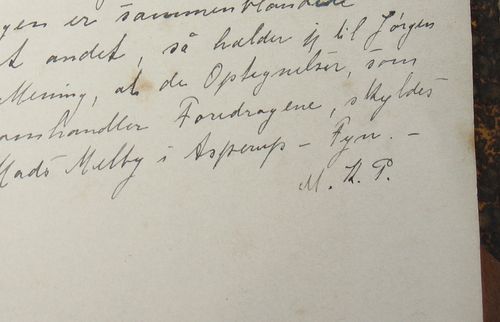 gen er sammenblandede
t andet, så holder jeg til Jørgen
Mening, at de Optegnelser, som
omhandler Foredragene, skyldes
Mads Melby i Asperup - Fyn. -
M. K. P.